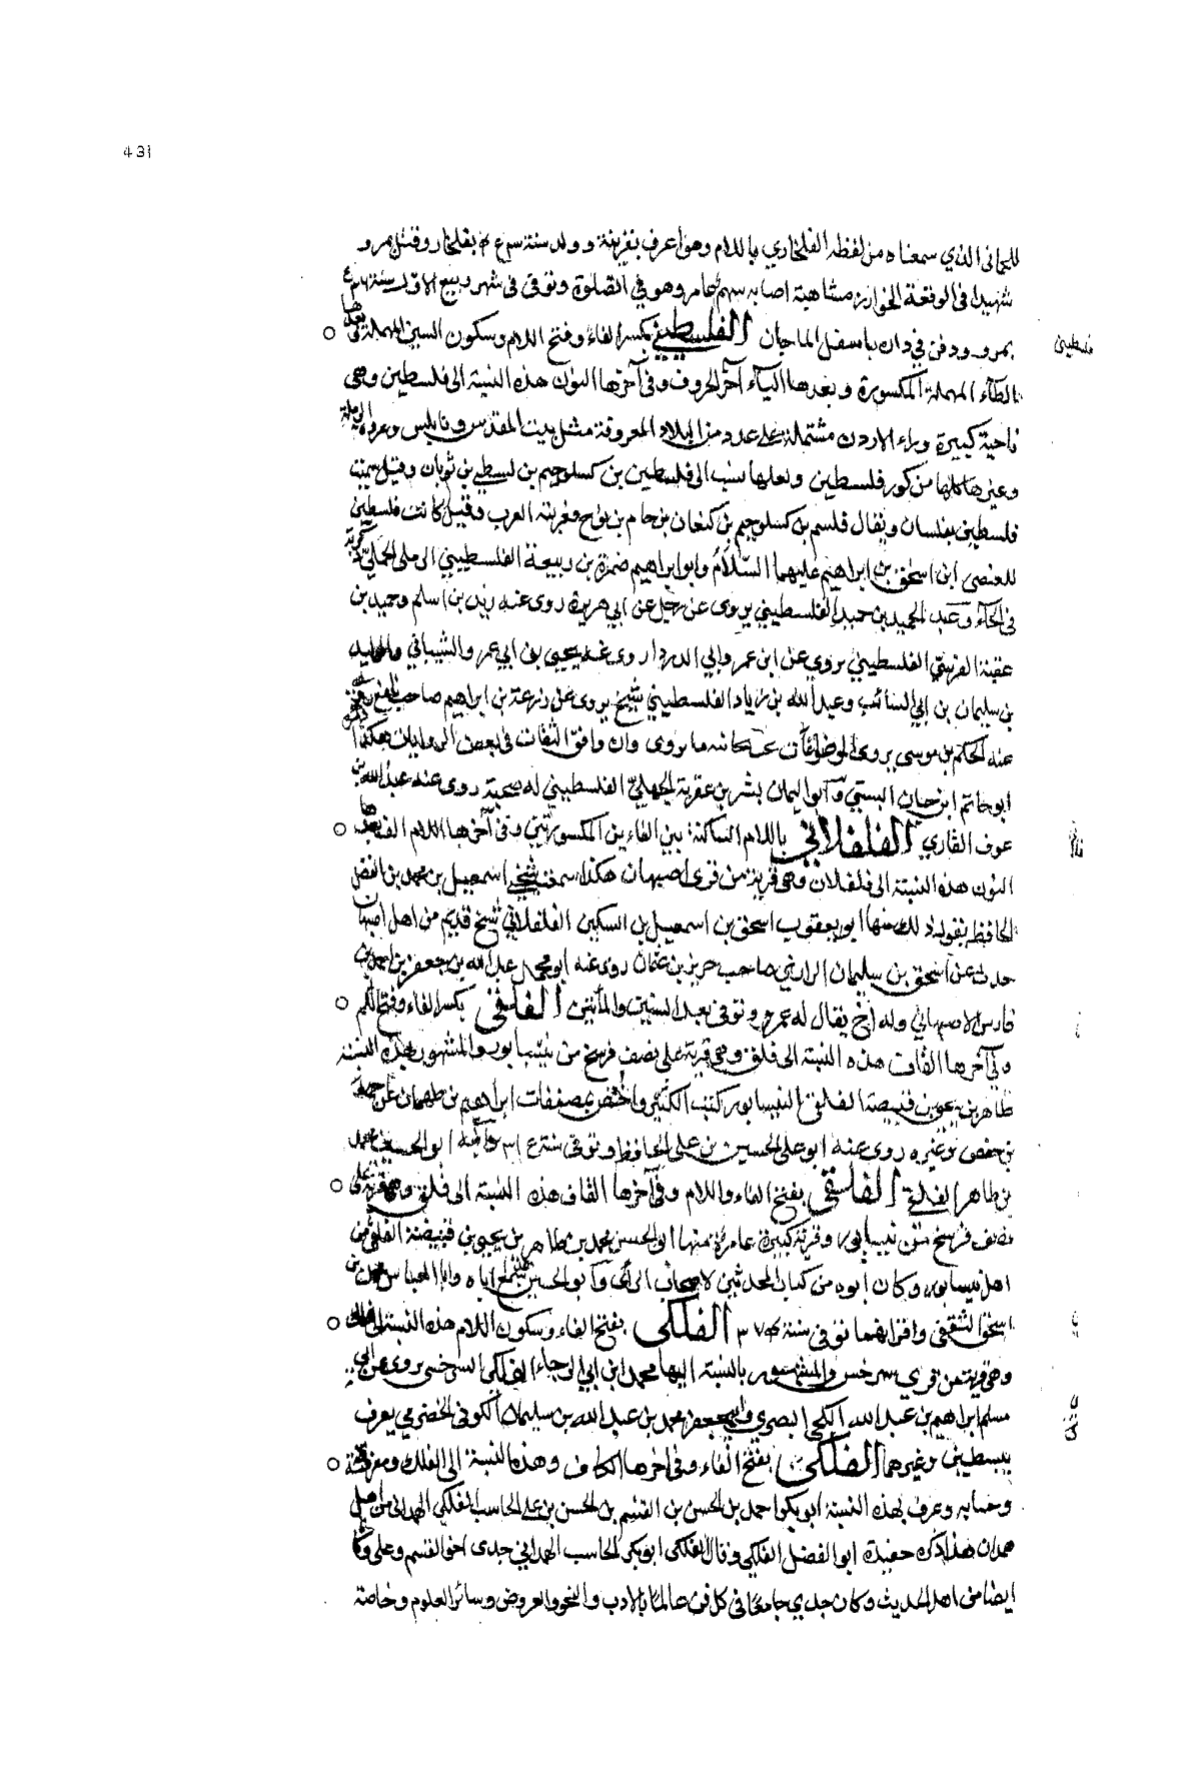 431
الذي سمعناه من لفظه الفلخاري باللام وهو اعرف بقريته وولد سنة بفلخار وقتل بمرو
شهيدا في الوقعة الخوارزمشاهية اصابه سهم وهو في الصلوة وتوفى في شهر ربيع الاول سنة
بمرو ودفن في داره باسفل الماجان الفلسطيني بكسر الفاء وفتح اللام وسكون السين المهملة وبعدها
فلسطيني
الطاء المهملة المكسورة وبعدها الياء آخر الحروف وفي آخرها النون هذه النسبة الى فلسطين وهي
ناحية كبيرة وراء الاردن مشتملة على عدد من البلاد المعروفة مثل بيت المقدس ونابلس والرملة
وغيرها كلها من كور فلسطين ولعلها نسب الى فلسطين بن كسلوجيم بن وقيل سميت
فلسطين بفلسان ويقال فلسم بن كسلوجيم بن كنعان بن حام بن نوح العرب وقيل كانت فلسطين
ابن اسحق بن ابراهيم عليهما السلام وابو ابراهيم ضمرة بن ربيعة الفلسطيني الرملي
في الحاء وعبد الحميد بن حميد الفلسطيني يروى عن رجل عن ابي هريرة روى عنه زيد بن اسلم وحميد بن
عقبة الفلسطيني يروي عن ابن عمر وابي الدردا روى عنه يحيى بن ابي عمرو الشيباني والوليد
بن سليمان بن ابي السائب وعبد الله بن زياد الفلسطيني شيخ يروى عن زرعة بن ابراهيم صاحب
عنه الحكم بن موسى يروى الموضوعات ما يروى وان وافق الثقات في بعض الروايات هكذا ذكره
ابو حاتم ابن حبان البستي وابو اليمان بشر بن عقربة الجهني الفلسطيني له صحبة روى عنه عبد الله بن
عوف القاري الفلفلاني باللام الساكنة بين الفاءين المكسورتين وفي آخرها اللام الف بعدها
النون هذه النسبة الى فلفلان وهي قرية من قرى اصبهان هكذا سمعت شيخي اسمعيل بن محمد بن الفضل
الحافظ يقول ذلك منها ابو يعقوب اسحق بن اسمعيل بن السكين الفلفلاني شيخ قديم من اهل اصبهان
حدث عن اسحق بن سليمان الرازي صاحب حريز بن عثمان روى عنه ابو محمد عبد الله بن جعفر بن احمد بن
فارس الاصبهاني وله اخ يقال له عمرو وتوفى بعد الستين والمأتين الفلقى بكسر الفاء وفتح اللام
وفي آخرها القاف هذه النسبة الى فلق وهي قرية على نصف فرسخ من نيسابور والمشهور بهذه النسبة
طاهر بن يحيى بن قبيصة الفلقي النيسابوري كتب الكثير بمصنفات ابراهيم بن طهمان عن احمد
بن حفص وغيره روى عنه ابو علي الحسين بن علي الحافظ وتوفى سنة وابنه ابو الحسين محمد
بن طاهر الفلقي الفلقى بفتح الفاء واللام وفي آخرها القاف هذه النسبة الى فلق وهي قرية على
نصف فرسخ من نيسابور وقرية كبيرة عامرة منها ابو الحسن محمد بن طاهر بن يحيى بن قبيصة الفلقي من
اهل نيسابور وكان ابوه من كبار المحدثين لاصحاب الرأى وابو الحسن سمع اباه وابا العباس محمد بن
اسحق الثقفي واقرانهما توفى سنة ٣٧٥ الفلكي بفتح الفاء وسكون اللام هذه النسبة الى
وهي قرية من قرى سرخس والمشهور بالنسبة اليها محمد ابن ابي الرجاء الفلكي السرخسي يروى عن ابي
مسلم ابراهيم بن عبد الله الكجي البصري وابي جعفر محمد بن عبد الله بن سليمان الكوفي الحضرمي يعرف
وغيرهما الفلكي بفتح الفاء وفي اخرها الكاف وهذه النسبة الى الفلك ومعرفته
وحسابه وعرف بهذه النسبة ابو بكر احمد بن الحسن بن القسم بن الحسن بن علي الحاسب الفلكي الهمداني من اهل
همدان هكذا ذكره حفيده ابو الفضل الفلكي وقال الفلكي ابو بكر الحاسب الهمداني جدي اخو القسم وعلي وكانا
ايضا من اهل الحديث وكان جدي جامعا في كل فن عالما بالادب والنحو والعروض وسائر العلوم وخاصة